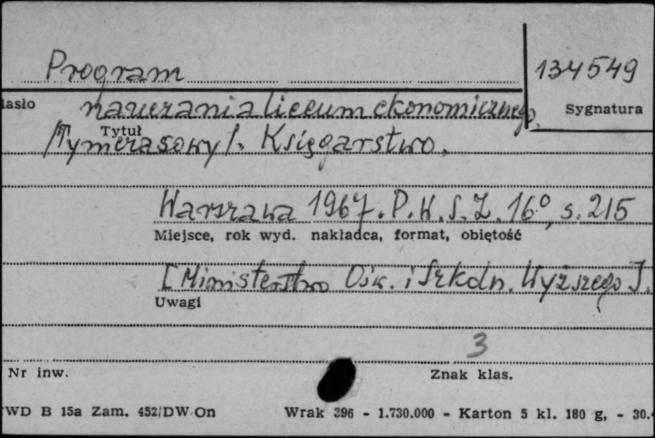 Program 134549
nauczania liceum ekonomicznego.
asło Tytuł Sygnatura
/Tymczasowy/. Księgarstwo.
Warszawa 1967. P.W.S.Z. 16°, s. 215
Miejsce, rok wyd. nakładca, format, objętość
[Ministerstwo Ośw. i Szkoln. Wyższego].
Uwagi
3
Nr inw. Znak klas.
WD B 15a Zam. 452/DW On Wrak 396 - 1.730.000 - Karton 5 kl. 180 g, - 30.